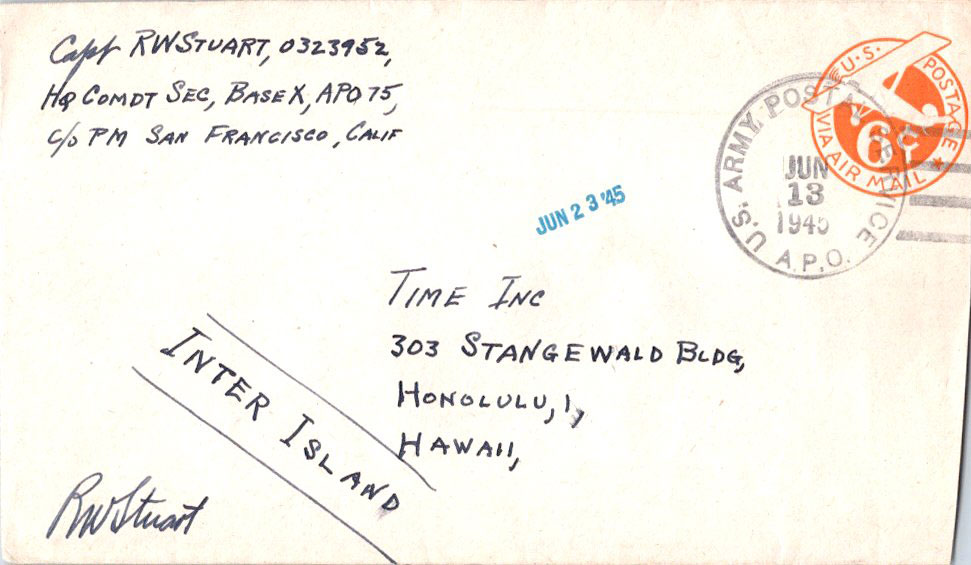 Capt RWSTUART, 0323952,
HQ COMDT SEC, BASE X, APO 75,
C/O PM SAN FRANCISCO, CALIF
U.S. POSTAGE
VIA AIR MAIL
6¢
U.S. ARMY POSTAL SERVICE
JUN
13
1945
A.P.O.
JUN 23 '45
TIME INC
303 STANGEWALD BLDG,
HONOLULU, 1,
HAWAII,
INTER ISLAND
RWStuart